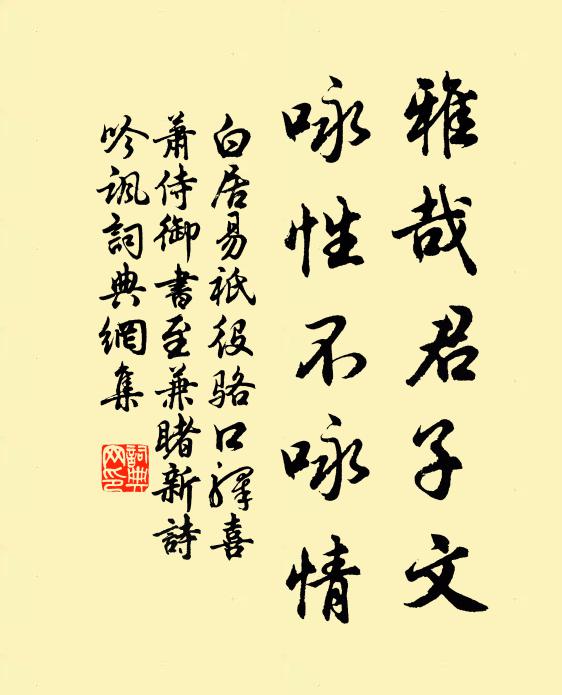 雅哉君子文
咏性不咏情
白居易祇役骆口驿喜
萧侍御書至兼睹新詩
吟諷詞典網集
詞典
网印